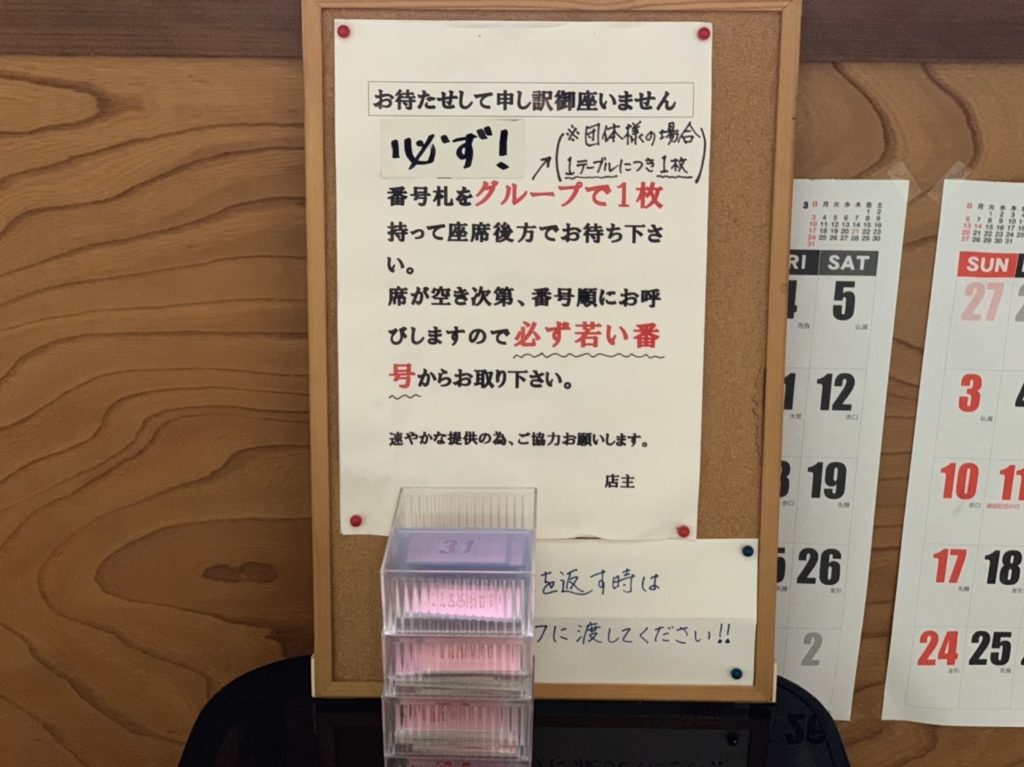 お待たせして申し訳御座いません
必ず!
(※団体様の場合
1テーブルにつき1枚)
番号札をグループで1枚
持って座席後方でお待ち下さ
い。
席が空き次第、番号順にお呼
びしますので必ず若い番
号からお取り下さい。
速やかな提供の為、ご協力お願いします。
店主
31
を返す時は
フに渡してください!!
3 日 月 火 水 木 金 土
RI SAT
5
12
19
26
2
SUN
27
3
10 11
17 18
24 25